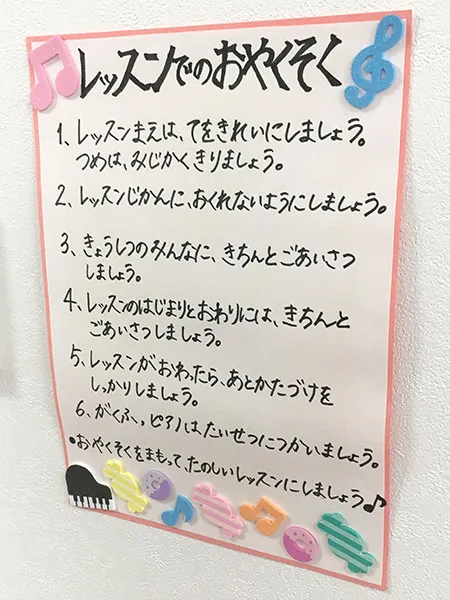 レッスンでのおやくそく
1、レッスンまえは、てをきれいにしましょう。
つめは、みじかくきりましょう。
2、レッスンじかんに、おくれないようにしましょう。
3、きょうしつのみんなに、きちんとごあいさつ
しましょう。
4、レッスンのはじまりとおわりには、きちんと
ごあいさつしましょう。
5、レッスンがおわったら、あとかたづけを
しっかりしましょう。
6、がくふ、ピアノは、たいせつにつかいましょう。
•おやくそくをまもって、たのしいレッスンにしましょう♪